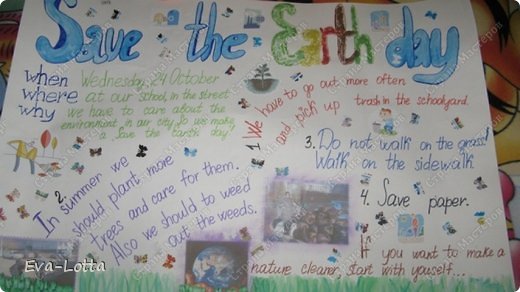 Save the Earth day
when
where
why
Wednesday, 24 October
at our school, in the street
we have to care about the
environment in our city. So we make
a Save the Earth day!
1. We have to go out more often
and pick up trash in the schoolyard.
2. In summer we
should plant more
trees and care for them.
Also we should to weed
out the weeds.
3. Do not walk on the grass!
Walk on the sidewalk
4. Save paper.
If you want to make a
nature cleaner, start with youself...
Eva-Lotta